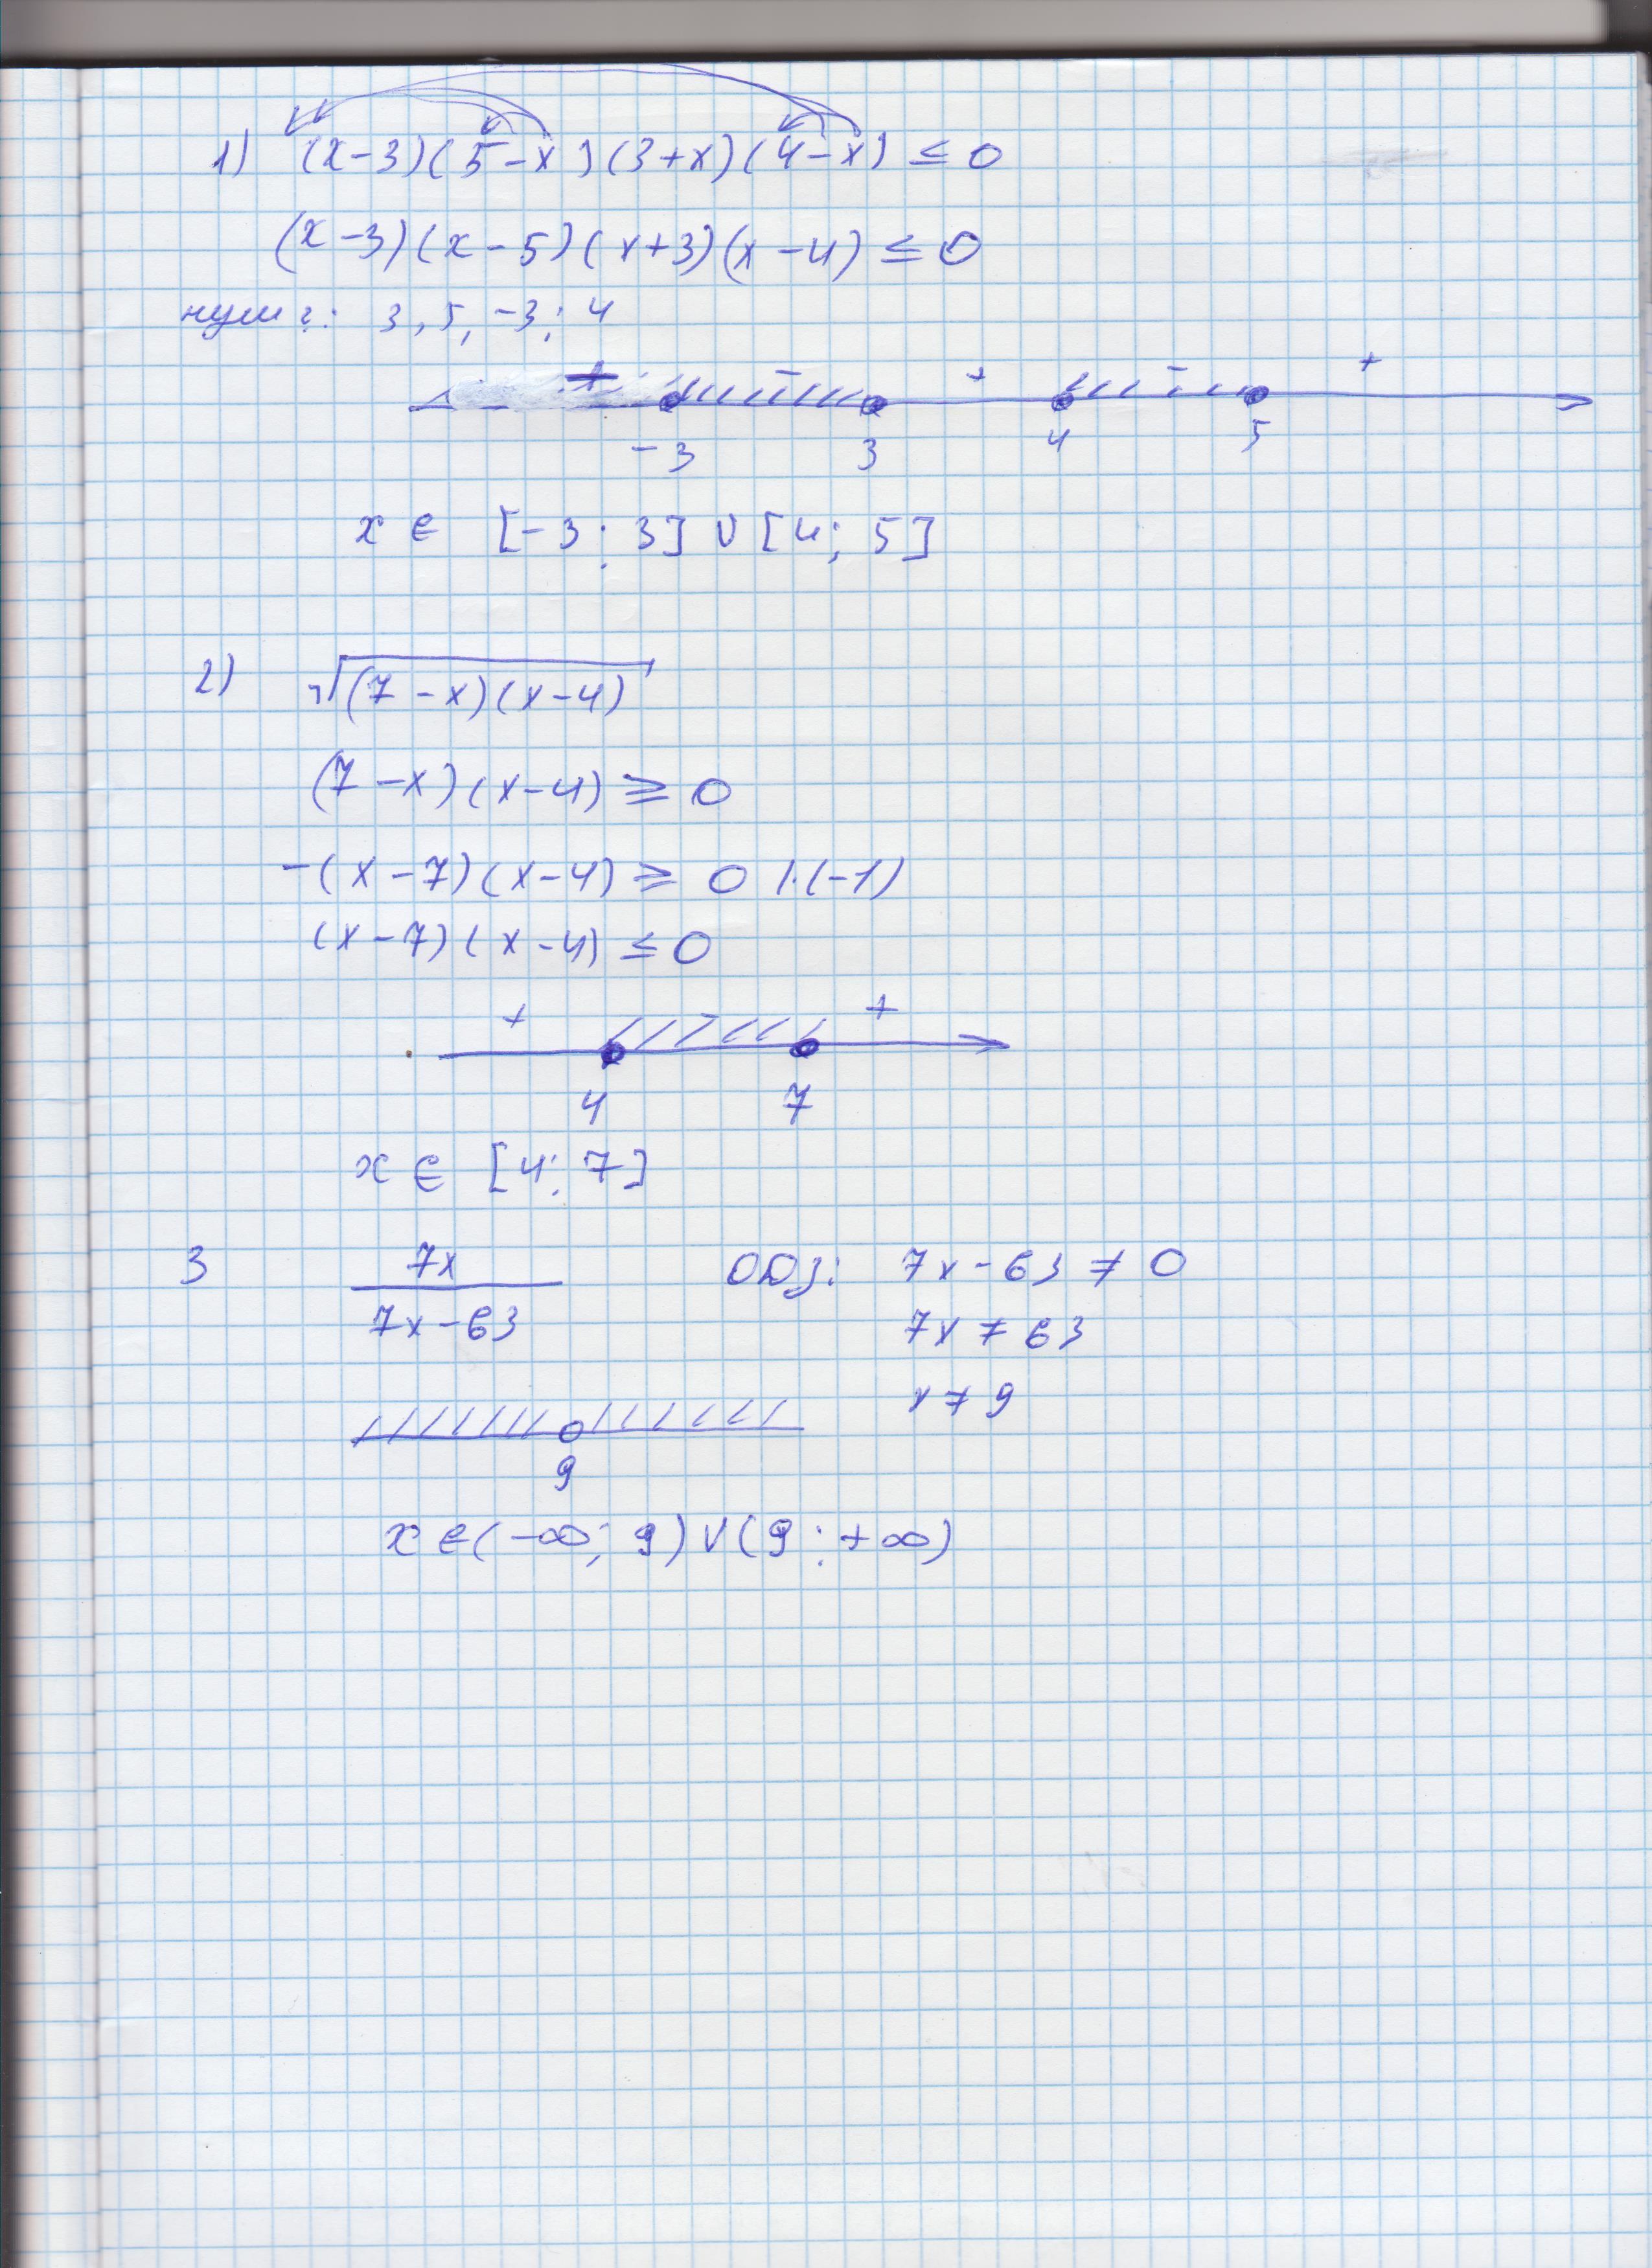 1) (x-3)(5-x)(3+x)(4-x) ≤ 0
(x-3)(x-5)(x+3)(x-4) ≤ 0
3, 5, -3; 4
+ - + - +
-3 3 4 5
x ∈ [-3; 3] ∪ [4; 5]
2) √(7-x)(x-4)
(7-x)(x-4) ≥ 0
-(x-7)(x-4) ≥ 0 |·(-1)
(x-7)(x-4) ≤ 0
+ - +
4 7
x ∈ [4; 7]
3 7x ОДЗ: 7x-63 ≠ 0
7x-63 7x ≠ 63
x ≠ 9
9
x ∈ (-∞; 9) ∪ (9; +∞)